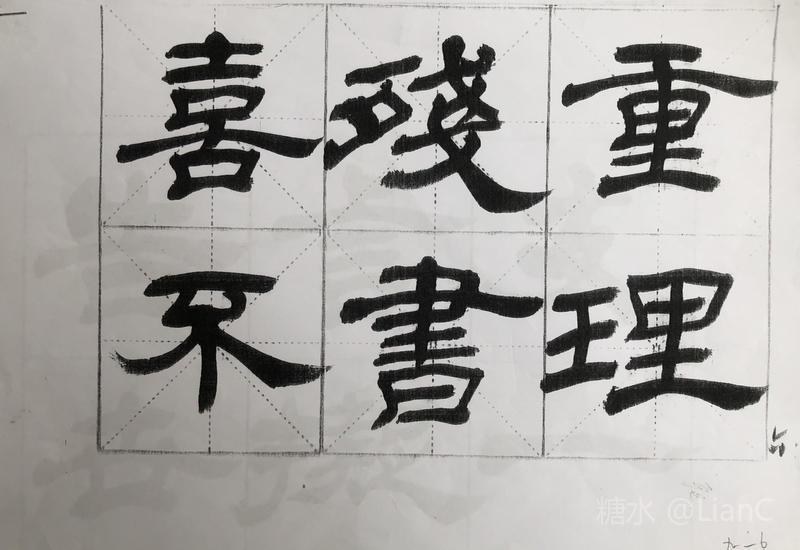 重理
殘書
喜不
糖水 @LianC